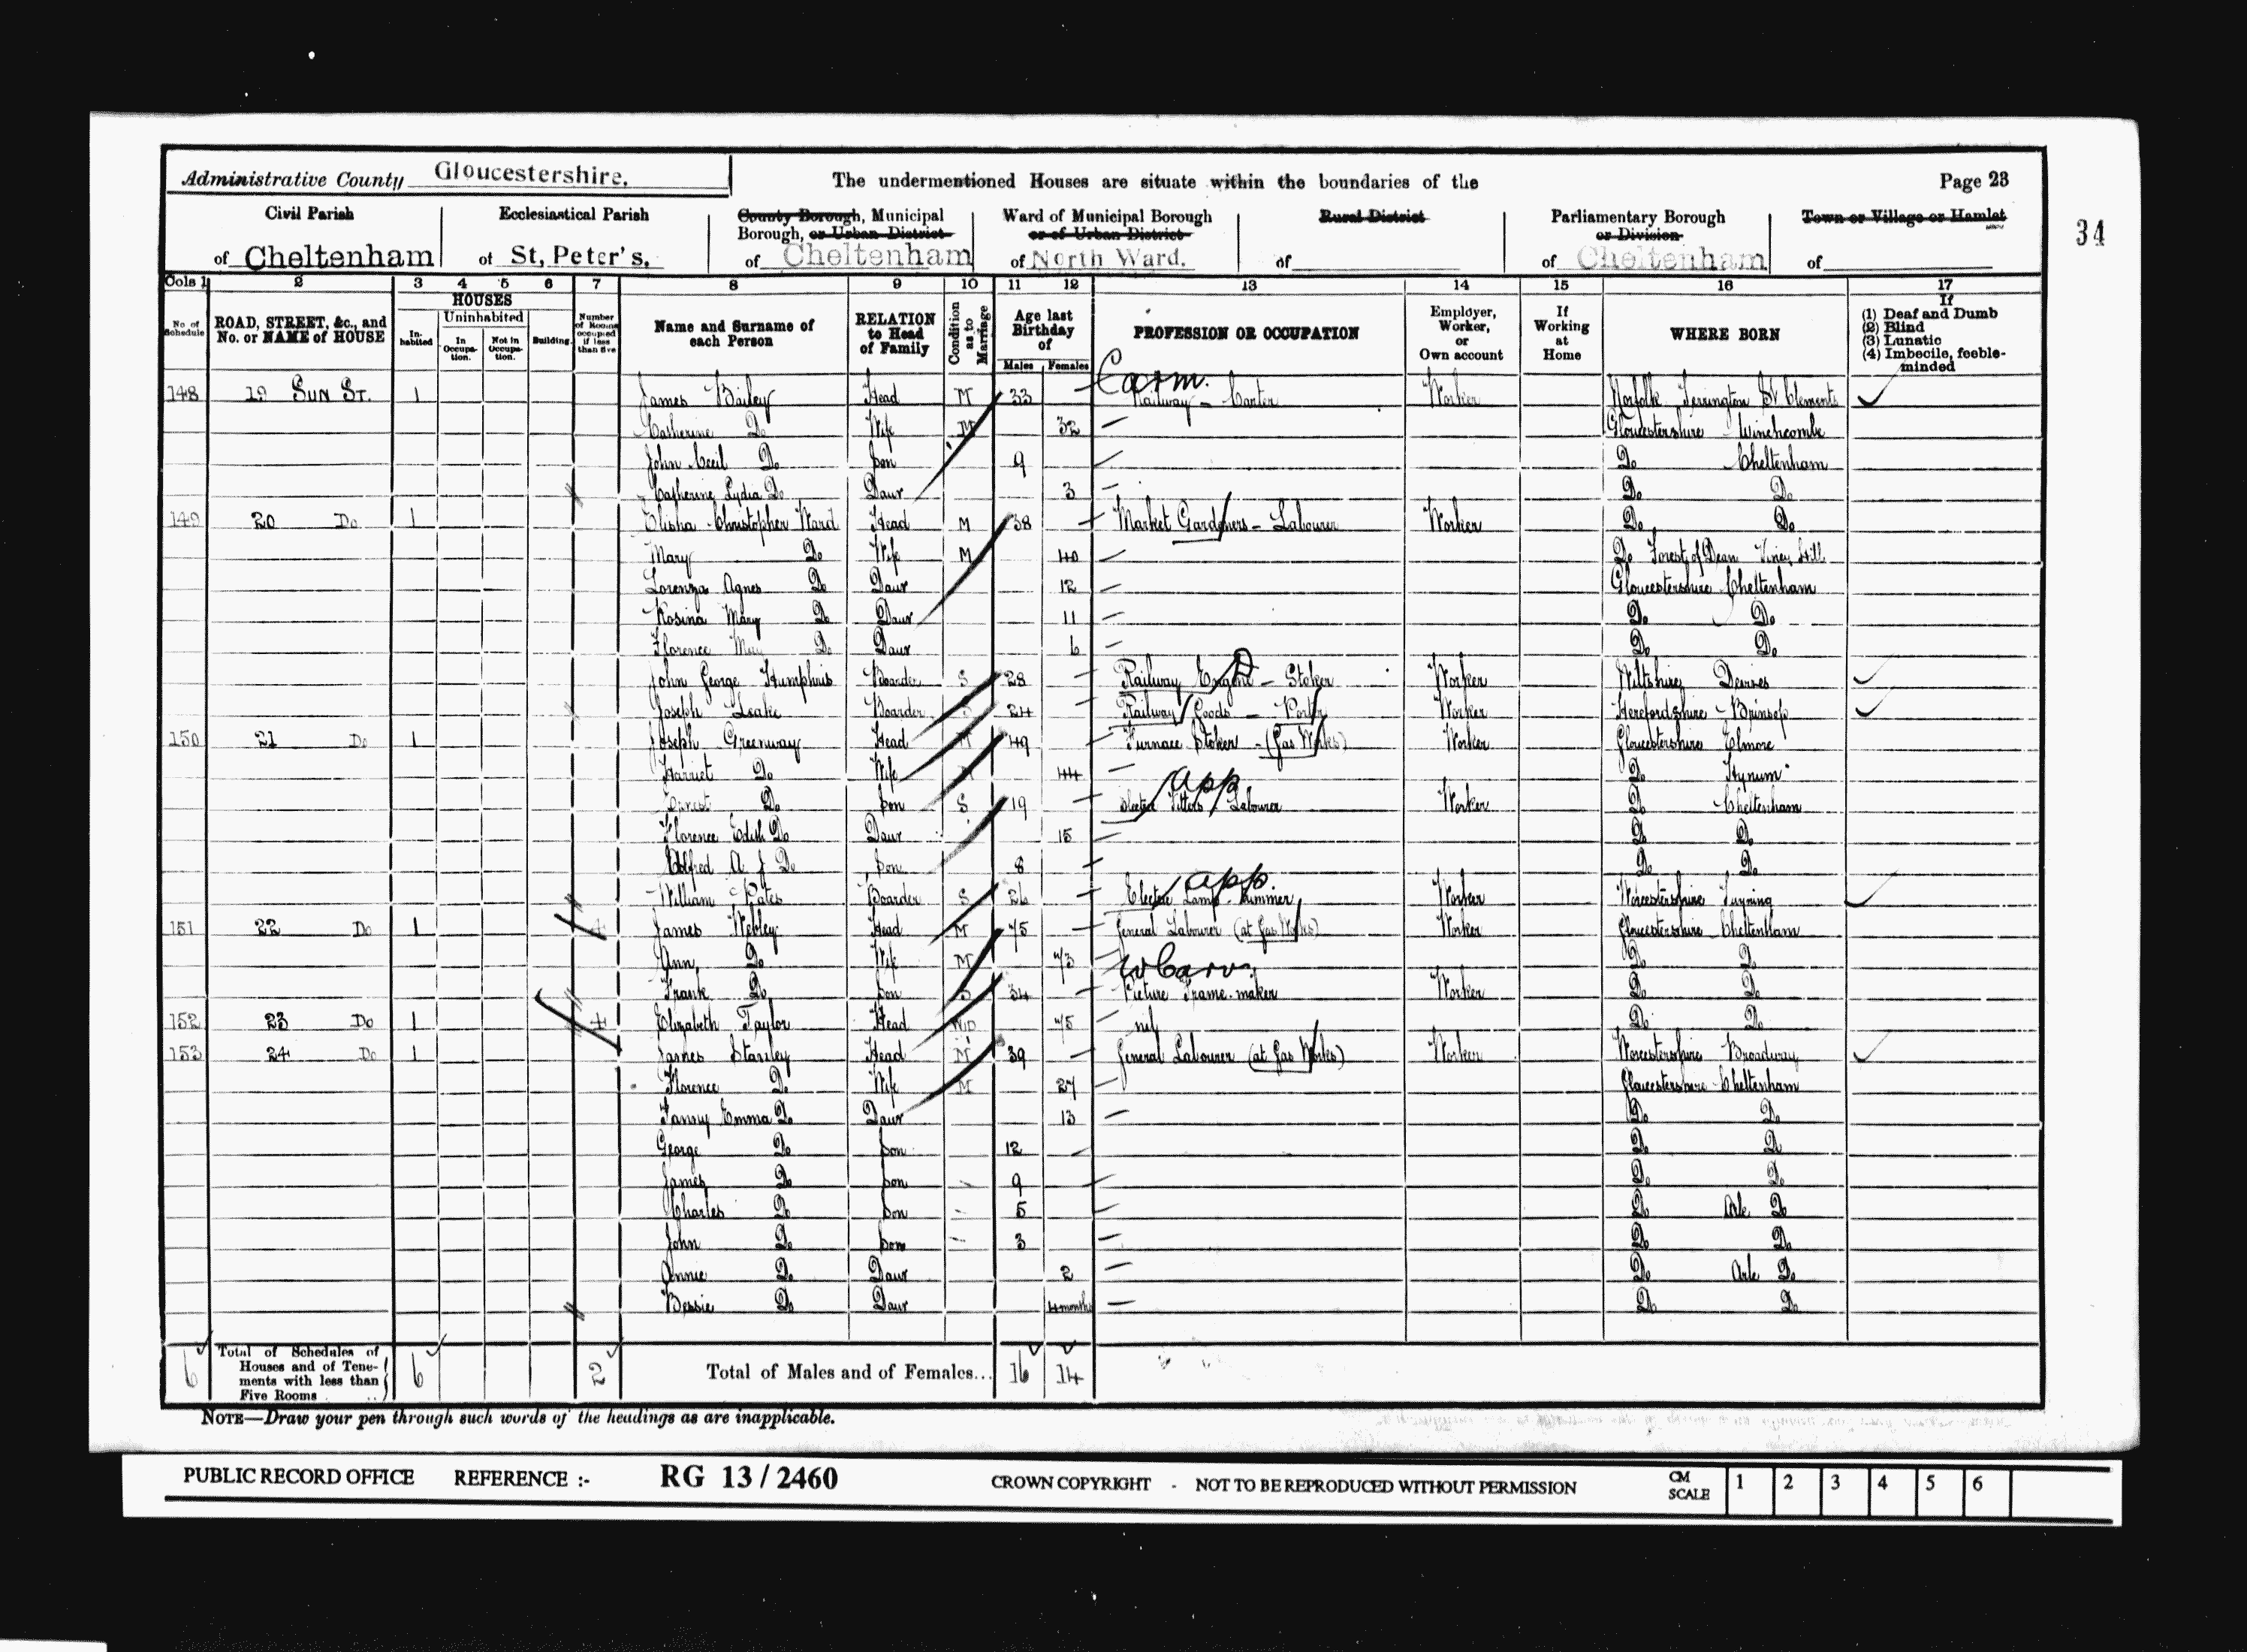 Administrative County Gloucestershire. The undermentioned Houses are situate within the boundaries of the Page 23
34
Civil Parish of Cheltenham
Ecclesiastical Parish of St, Peter's,
County Borough, Municipal Borough, or Urban District of Cheltenham
Ward of Municipal Borough or of Urban District of North Ward.
Rural District of
Parliamentary Borough or Division of Cheltenham
Town or Village or Hamlet of
Cols 1 2 3 4 5 6 7 8 9 10 11 12 13 14 15 16 17
No of Schedule
ROAD, STREET, &c., and No. or NAME of HOUSE
HOUSES
In-habited
Uninhabited
In Occupa-tion.
Not in Occupa-tion.
Building.
Number of Rooms occupied if less than five
Name and Surname of each Person
RELATION to Head of Family
Condition as to Marriage
Age last Birthday of
Males Females
PROFESSION OR OCCUPATION
Employer, Worker, or Own account
If Working at Home
WHERE BORN
If
(1) Deaf and Dumb
(2) Blind
(3) Lunatic
(4) Imbecile, feeble-minded
Carm.
148 19 Sun St. 1 James Bailey Head M 33 Railway - Carter Worker Norfolk Terrington St Clements
Catherine Do Wife M 32 Gloucestershire Winchcombe
John Cecil Do Son 9 Do Cheltenham
Catherine Lydia Do Daur 3 Do Do
149 20 Do 1 Elisha Christopher Ward Head M 38 Market Gardeners - Labourer Worker Do Do
Mary Do Wife M 40 Do Forest of Dean Viney Hill
Lorenza Agnes Do Daur 12 Gloucestershire Cheltenham
Rosina Mary Do Daur 11 Do Do
Florence May Do Daur 6 Do Do
John George Humphris Boarder S 28 Railway Engine - Stoker Worker Wiltshire Devizes
Joseph Leake Boarder S 24 Railway Goods - Porter Worker Herefordshire Brinsop
150 21 Do 1 Joseph Greenway Head M 49 Furnace Stoker - (Gas Works) Worker Gloucestershire Elmore
Harriet Do Wife M 44 Do Hynum
app
Ernest Do Son S 19 Electric Fitters Labourer Worker Do Cheltenham
Florence Edith Do Daur 15 Do Do
Alfred A J Do Son 8 Do Do
app.
William Bates Boarder S 26 Electric Lamp Trimmer Worker Worcestershire Twyning
151 22 Do 1 4 James Webley Head M 75 General Labourer (at Gas Works) Worker Gloucestershire Cheltenham
Ann Do Wife M 73 Do Do
W Carv.
Frank Do Son S 34 Picture Frame-maker Worker Do Do
152 23 Do 1 4 Elizabeth Taylor Head Wid 75 nil Do Do
153 24 Do 1 James Stanley Head M 39 General Labourer (at Gas Works) Worker Worcestershire Broadway
Florence Do Wife M 27 Gloucestershire Cheltenham
Fanny Emma Do Daur 13 Do Do
George Do Son 12 Do Do
James Do Son 9 Do Do
Charles Do Son 5 Do Arle Do
John Do Son 3 Do Do
Annie Do Daur 2 Do Arle Do
Bessie Do Daur 4 months Do Do
6 Total of Schedules of Houses and of Tene-ments with less than Five Rooms 6 2 Total of Males and of Females... 16 14
NOTE—Draw your pen through such words of the headings as are inapplicable.
PUBLIC RECORD OFFICE REFERENCE :- RG 13 / 2460 CROWN COPYRIGHT - NOT TO BE REPRODUCED WITHOUT PERMISSION CM SCALE 1 2 3 4 5 6